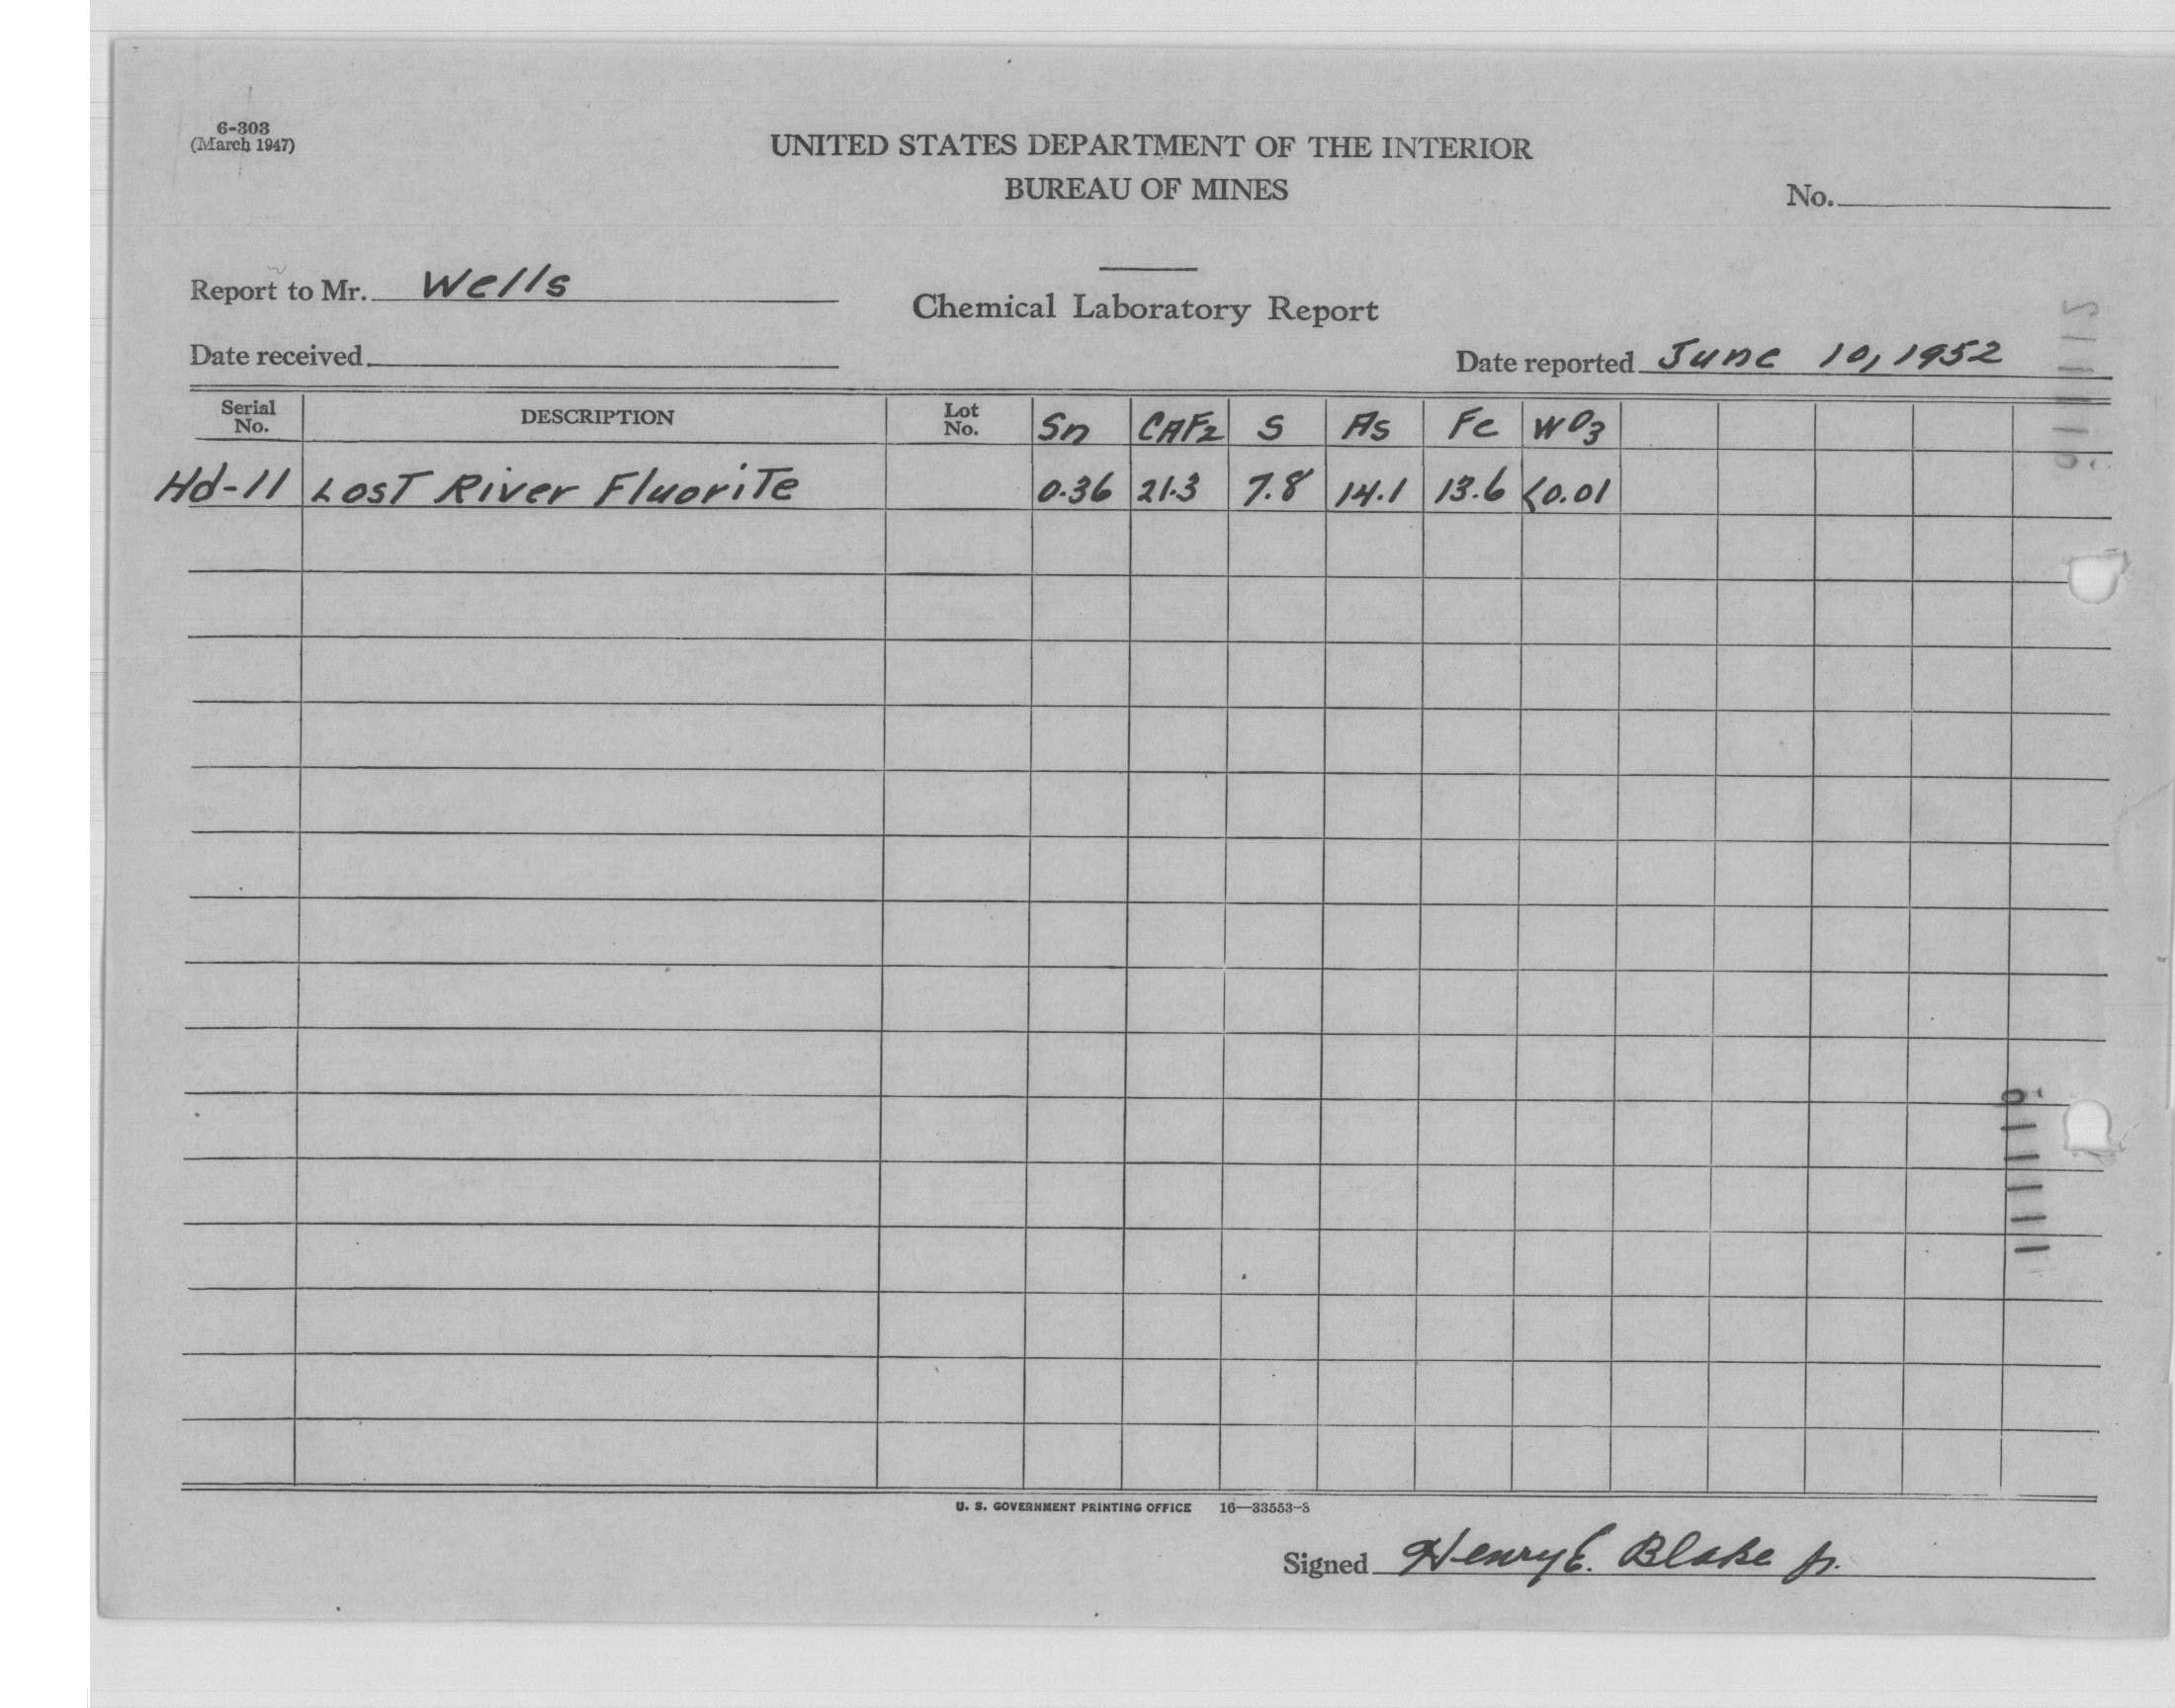 6-303
(March 1947)
UNITED STATES DEPARTMENT OF THE INTERIOR
BUREAU OF MINES
No.
Report to Mr. Wells
Chemical Laboratory Report
Date received
Date reported June 10, 1952
Serial No. DESCRIPTION Lot No. Sn CAF2 S As Fe WO3
Hd-11 Lost River Fluorite 0.36 21.3 7.8 14.1 13.6 <0.01
U. S. GOVERNMENT PRINTING OFFICE 16—33553-3
Signed Henry E. Blake Jr.